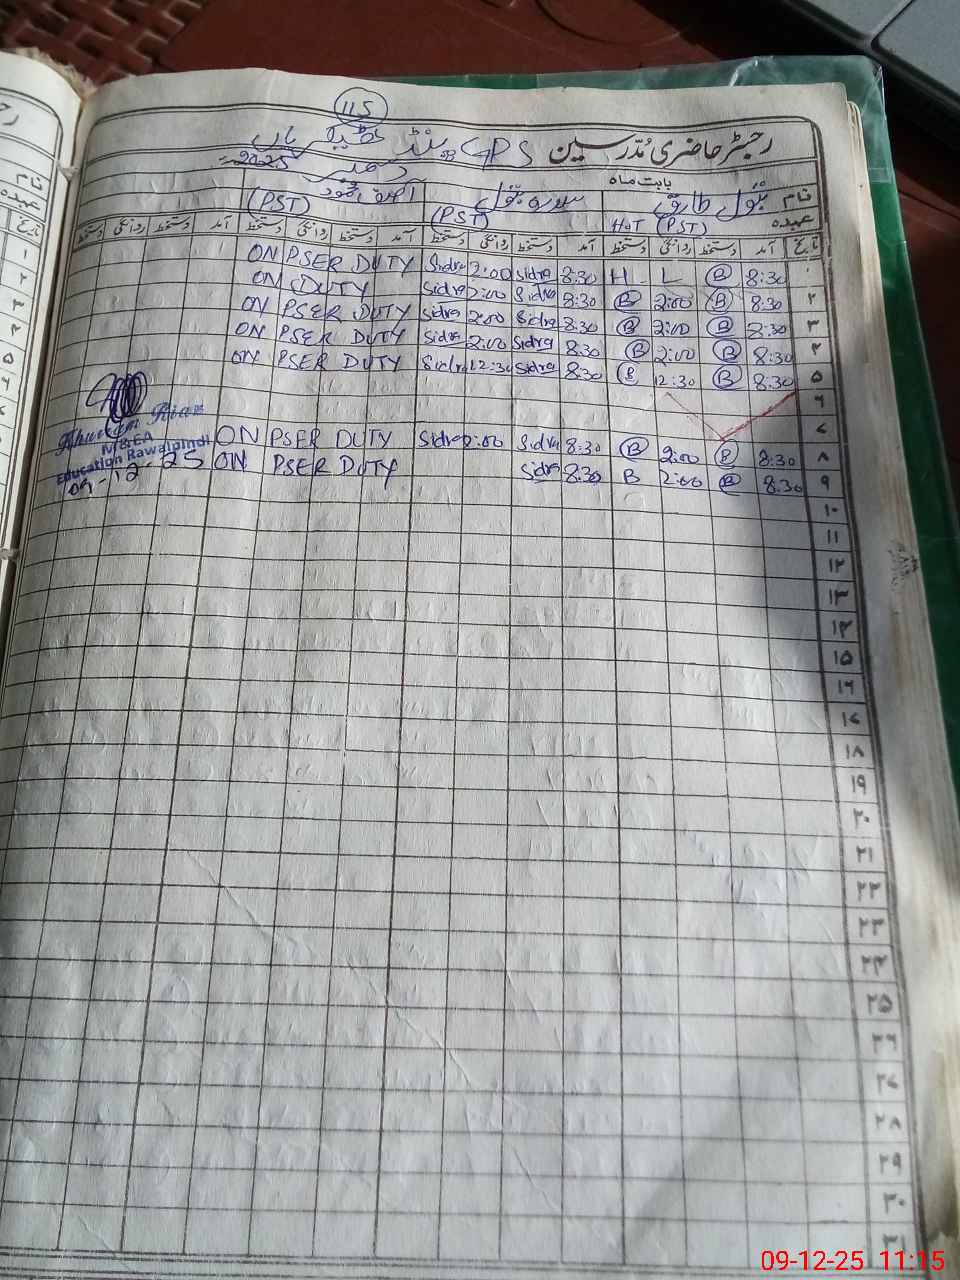 115
رجسٹر حاضری مدرسین GPS پنڈ
بابت ماہ دسمبر 2025
نام بتول طارق سدرہ بتول آصف محمود
عہدہ HOT (PST) (PST) (PST)
تاریخ آمد دستخط روانگی دستخط آمد دستخط روانگی دستخط آمد دستخط روانگی دستخط آمد دستخط روانگی دستخط
۱ 8:30 B L H 8:30 Sidra 2:00 Sidra ON PSER DUTY
۲ 8:30 B 2:00 B 8:30 Sidra 2:00 Sidra ON DUTY
۳ 8:30 B 2:00 B 8:30 Sidra 2:00 Sidra ON PSER DUTY
۴ 8:30 B 2:00 B 8:30 Sidra 2:00 Sidra ON PSER DUTY
۵ 8:30 B 12:30 B 8:30 Sidra 12:30 Sidra ON PSER DUTY
۶
۷
۸ 8:30 B 2:00 B 8:30 Sidra 2:00 Sidra ON PSER DUTY
۹ 8:30 B 2:00 B 8:30 Sidra ON PSER DUTY
Khurram Riaz
M&EA
Education Rawalpindi
09-12-25
۱۰
۱۱
۱۲
۱۳
۱۴
۱۵
۱۶
۱۷
۱۸
۱۹
۲۰
۲۱
۲۲
۲۳
۲۴
۲۵
۲۶
۲۷
۲۸
۲۹
۳۰
۳۱
09-12-25 11:15